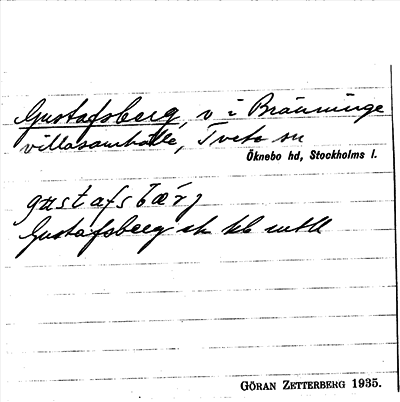 Gustafsberg, v i Bränninge
villasamhälle, Tveta sn
Öknebo hd, Stockholms l.
gustafsbærj
Gustafsberg
GÖRAN ZETTERBERG 1935.